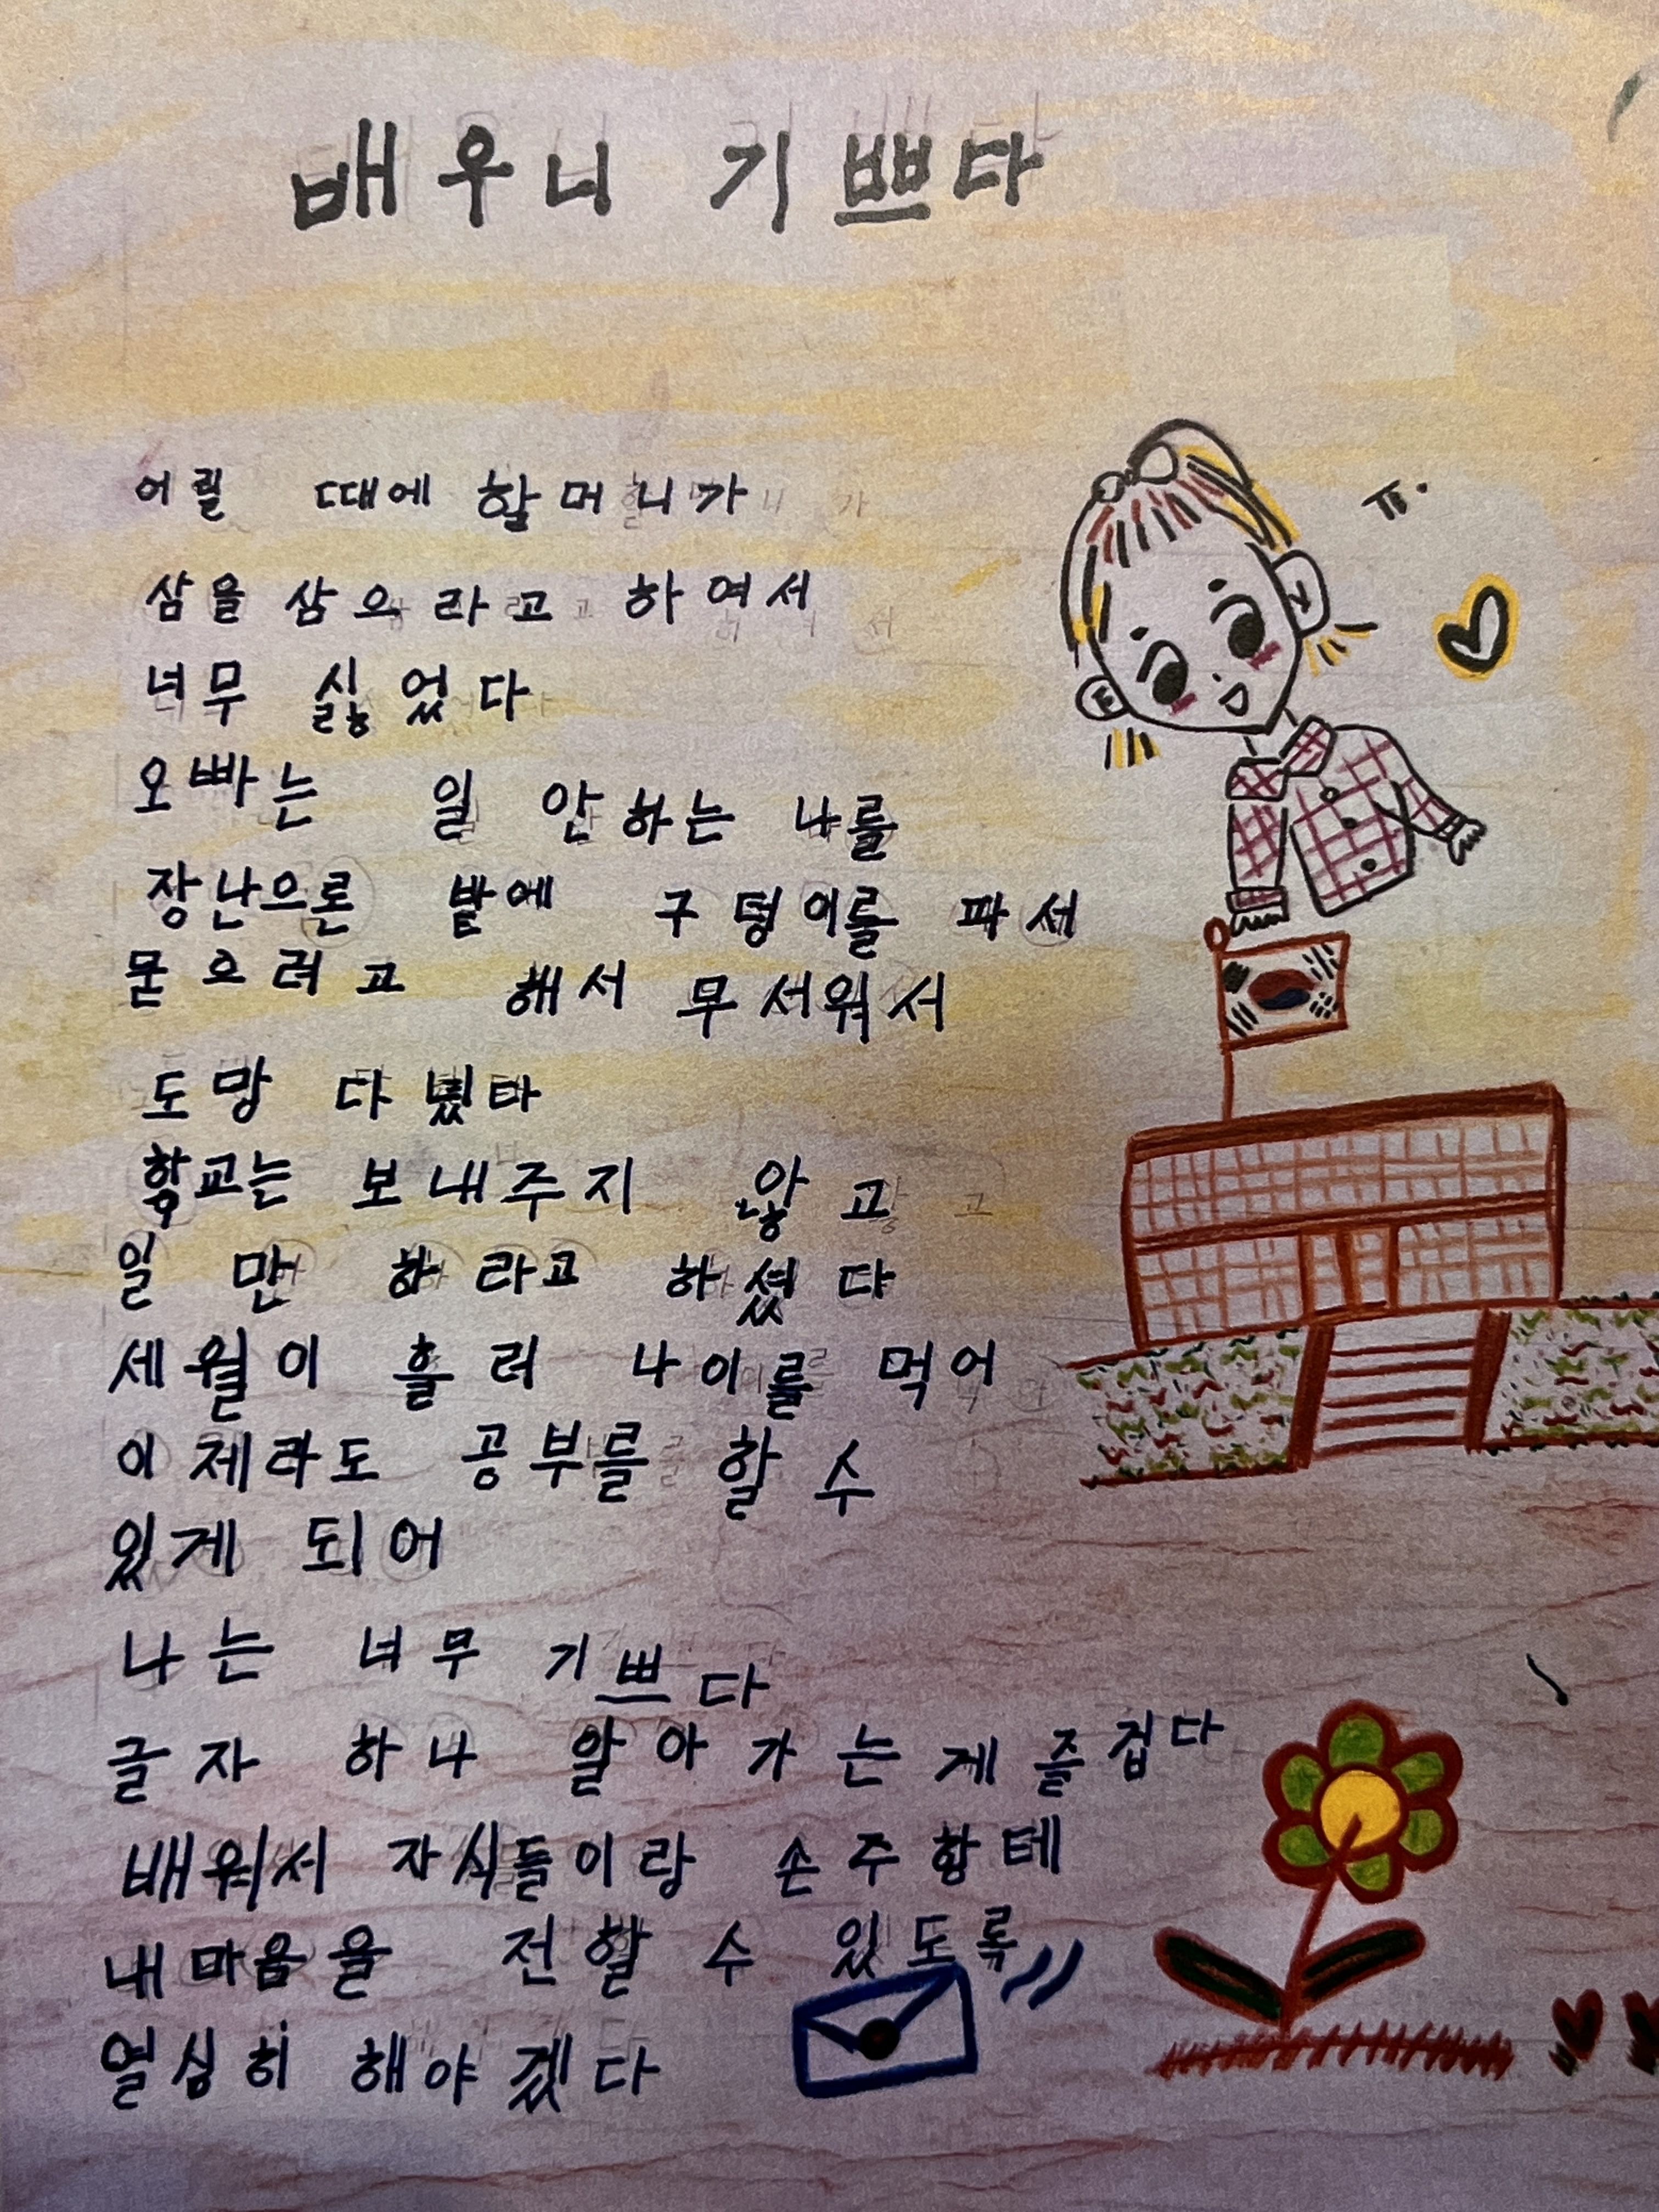 배우니 기쁘다
어릴 때에 할머니가
삼을 삼으라고 하여서
너무 싫었다
오빠는 일 안하는 나를
장난으론 밭에 구덩이를 파서
묻으려고 해서 무서워서
도망 다녔다
학교는 보내주지 않고
일만 하라고 하셨다
세월이 흘러 나이를 먹어
이제라도 공부를 할 수
있게 되어
나는 너무 기쁘다
글자 하나 알아가는게 즐겁다
배워서 자식들이랑 손주한테
내마음을 전할 수 있도록
열심히 해야겠다